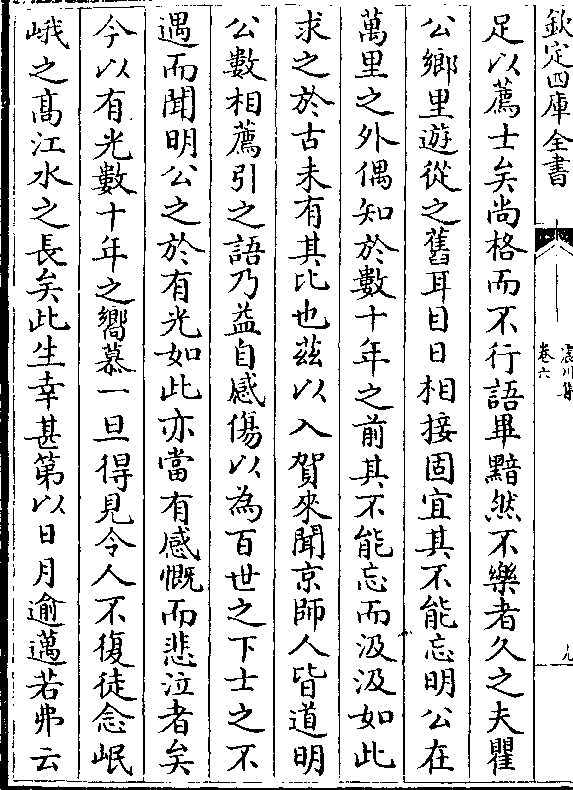 欽定四庫全書
震川集
卷六
九
足以薦士矣尚格而不行語畢黯然不樂者久之夫瞿
公鄉里遊從之舊耳目日相接固宜其不能忘明公在
萬里之外偶知於數十年之前其不能忘而汲汲如此
求之於古未有其比也茲以入賀來聞京師人皆道明
公數相薦引之語乃益自感傷以為百世之下士之不
遇而聞明公之於有光如此亦當有感慨而悲泣者矣
今以有光數十年之嚮慕一旦得見令人不復徒念岷
峨之髙江水之長矣此生幸甚第以日月逾邁若弗云